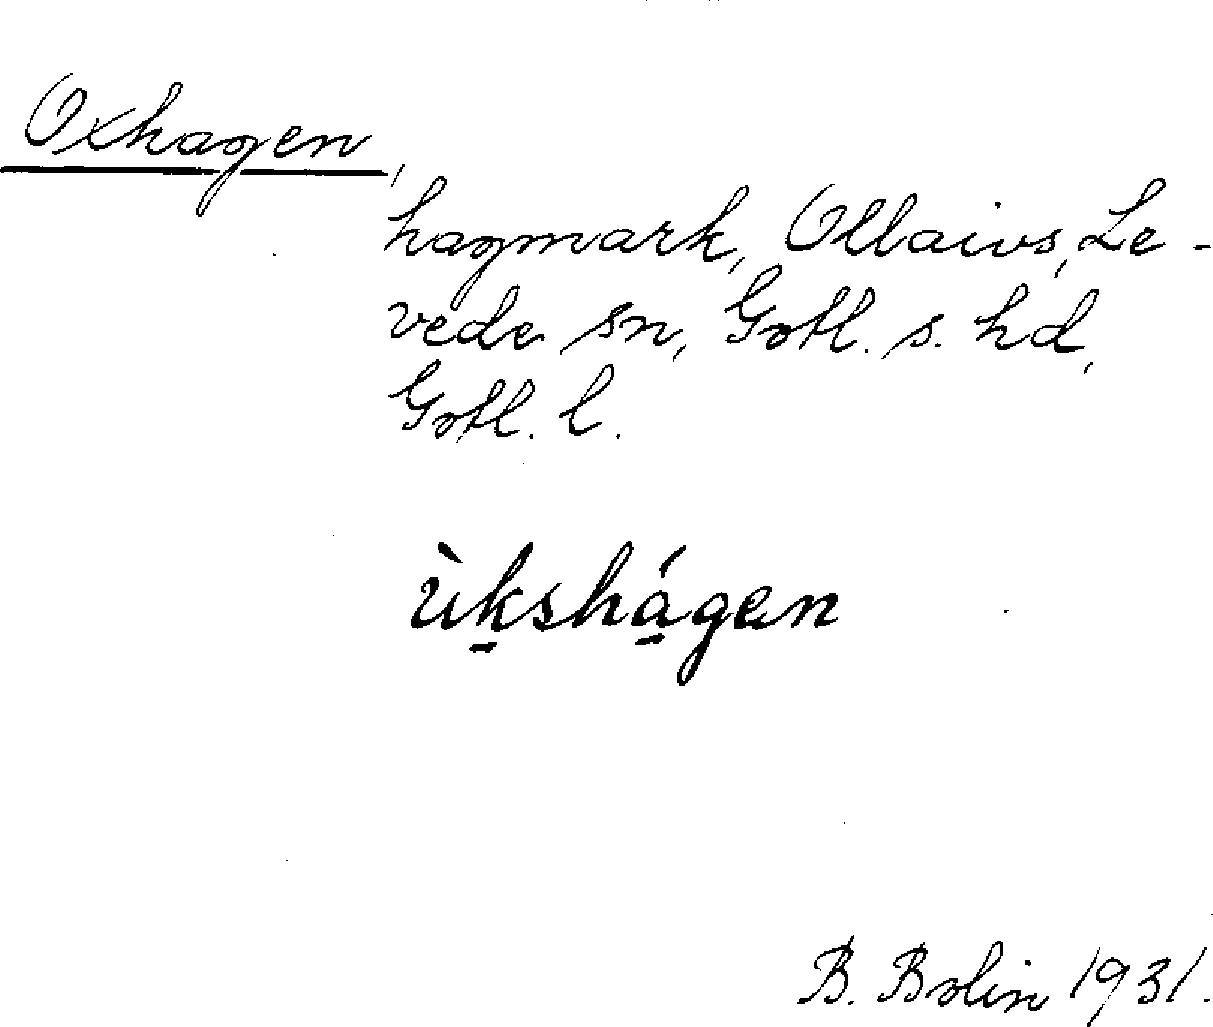 Oxhagen,
hagmark, Ollaivs, Le-
vede sn, Gotl. s. hd,
Gotl. l.
ùk̠shá̠gęn
B. Bolin 1931.